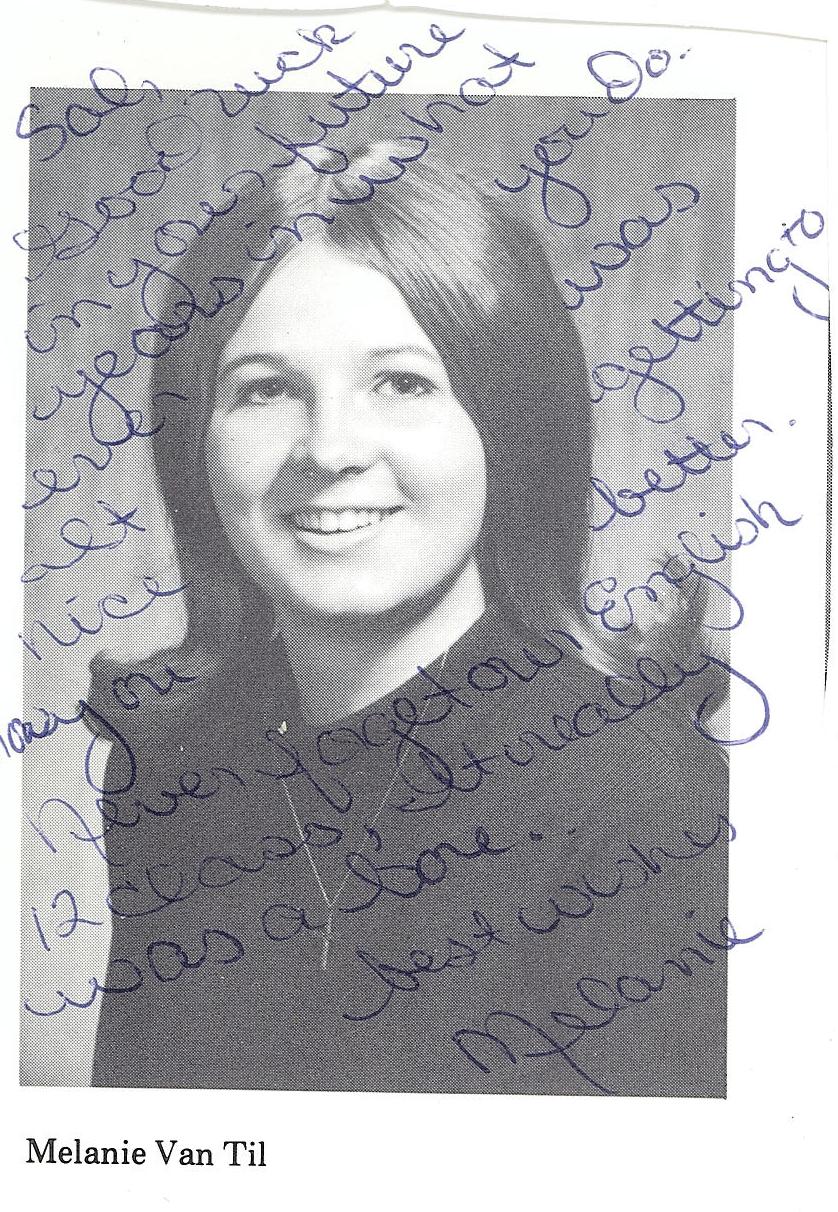 Sal,
Good Luck
in your future
years in what
ever you Do.
It was
nice getting to
know you better.
Never forget our English
12 class, It really
was a bore...
best wishes
Melanie
Melanie Van Til